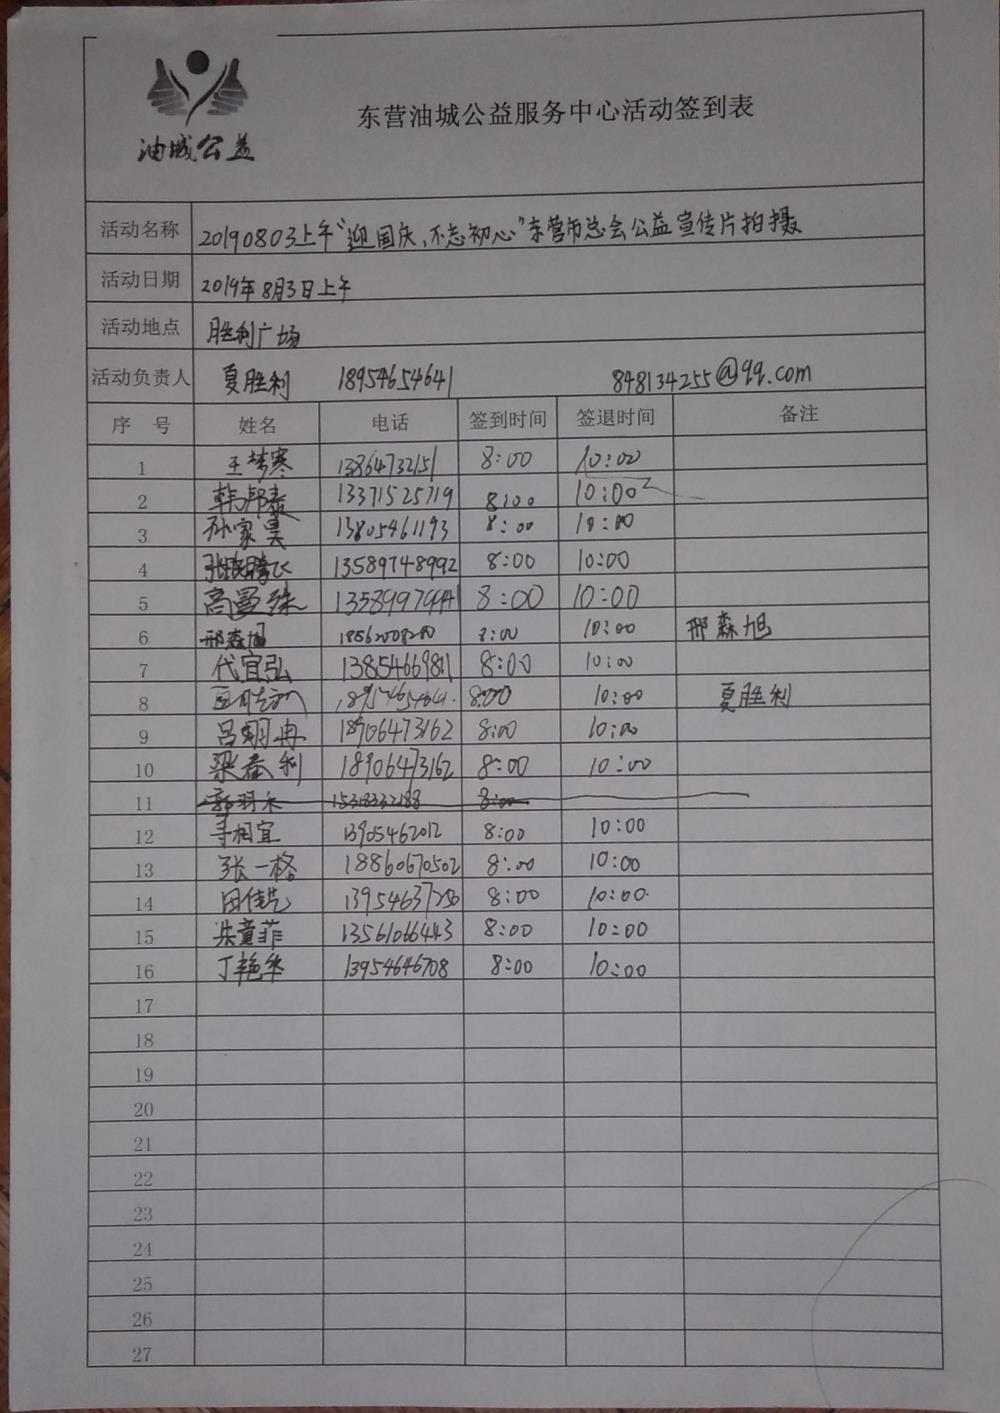 油城公益
东营油城公益服务中心活动签到表
活动名称 20190803上午"迎国庆,不忘初心"东营市总会公益宣传片拍摄
活动日期 2019年8月3日上午
活动地点 胜利广场
活动负责人 夏胜利 18954654641 848134255@qq.com
序 号 姓名 电话 签到时间 签退时间 备注
1 王梦寒 13864732151 8:00 10:00
2 韩邦泰 13371525719 8:00 10:00
3 孙家昊 13805461193 8:00 10:00
4 腾飞 13589748992 8:00 10:00
5 高曼殊 8:00 10:00
6 邢森旭 8:00 10:00 邢森旭
7 代宜弘 13854669811 8:00 10:00
8 18954654641 8:00 10:00 夏胜利
9 吕翊冉 18906473162 8:00 10:00
10 梁春利 18906473162 8:00 10:00
11 郭羽禾 15318332188 8:00
12 相宜 13905462012 8:00 10:00
13 张一格 18860670502 8:00 10:00
14 田佳艺 8:00 10:00
15 童菲 13561066443 8:00 10:00
16 丁艳华 13954646708 8:00 10:00
17
18
19
20
21
22
23
24
25
26
27